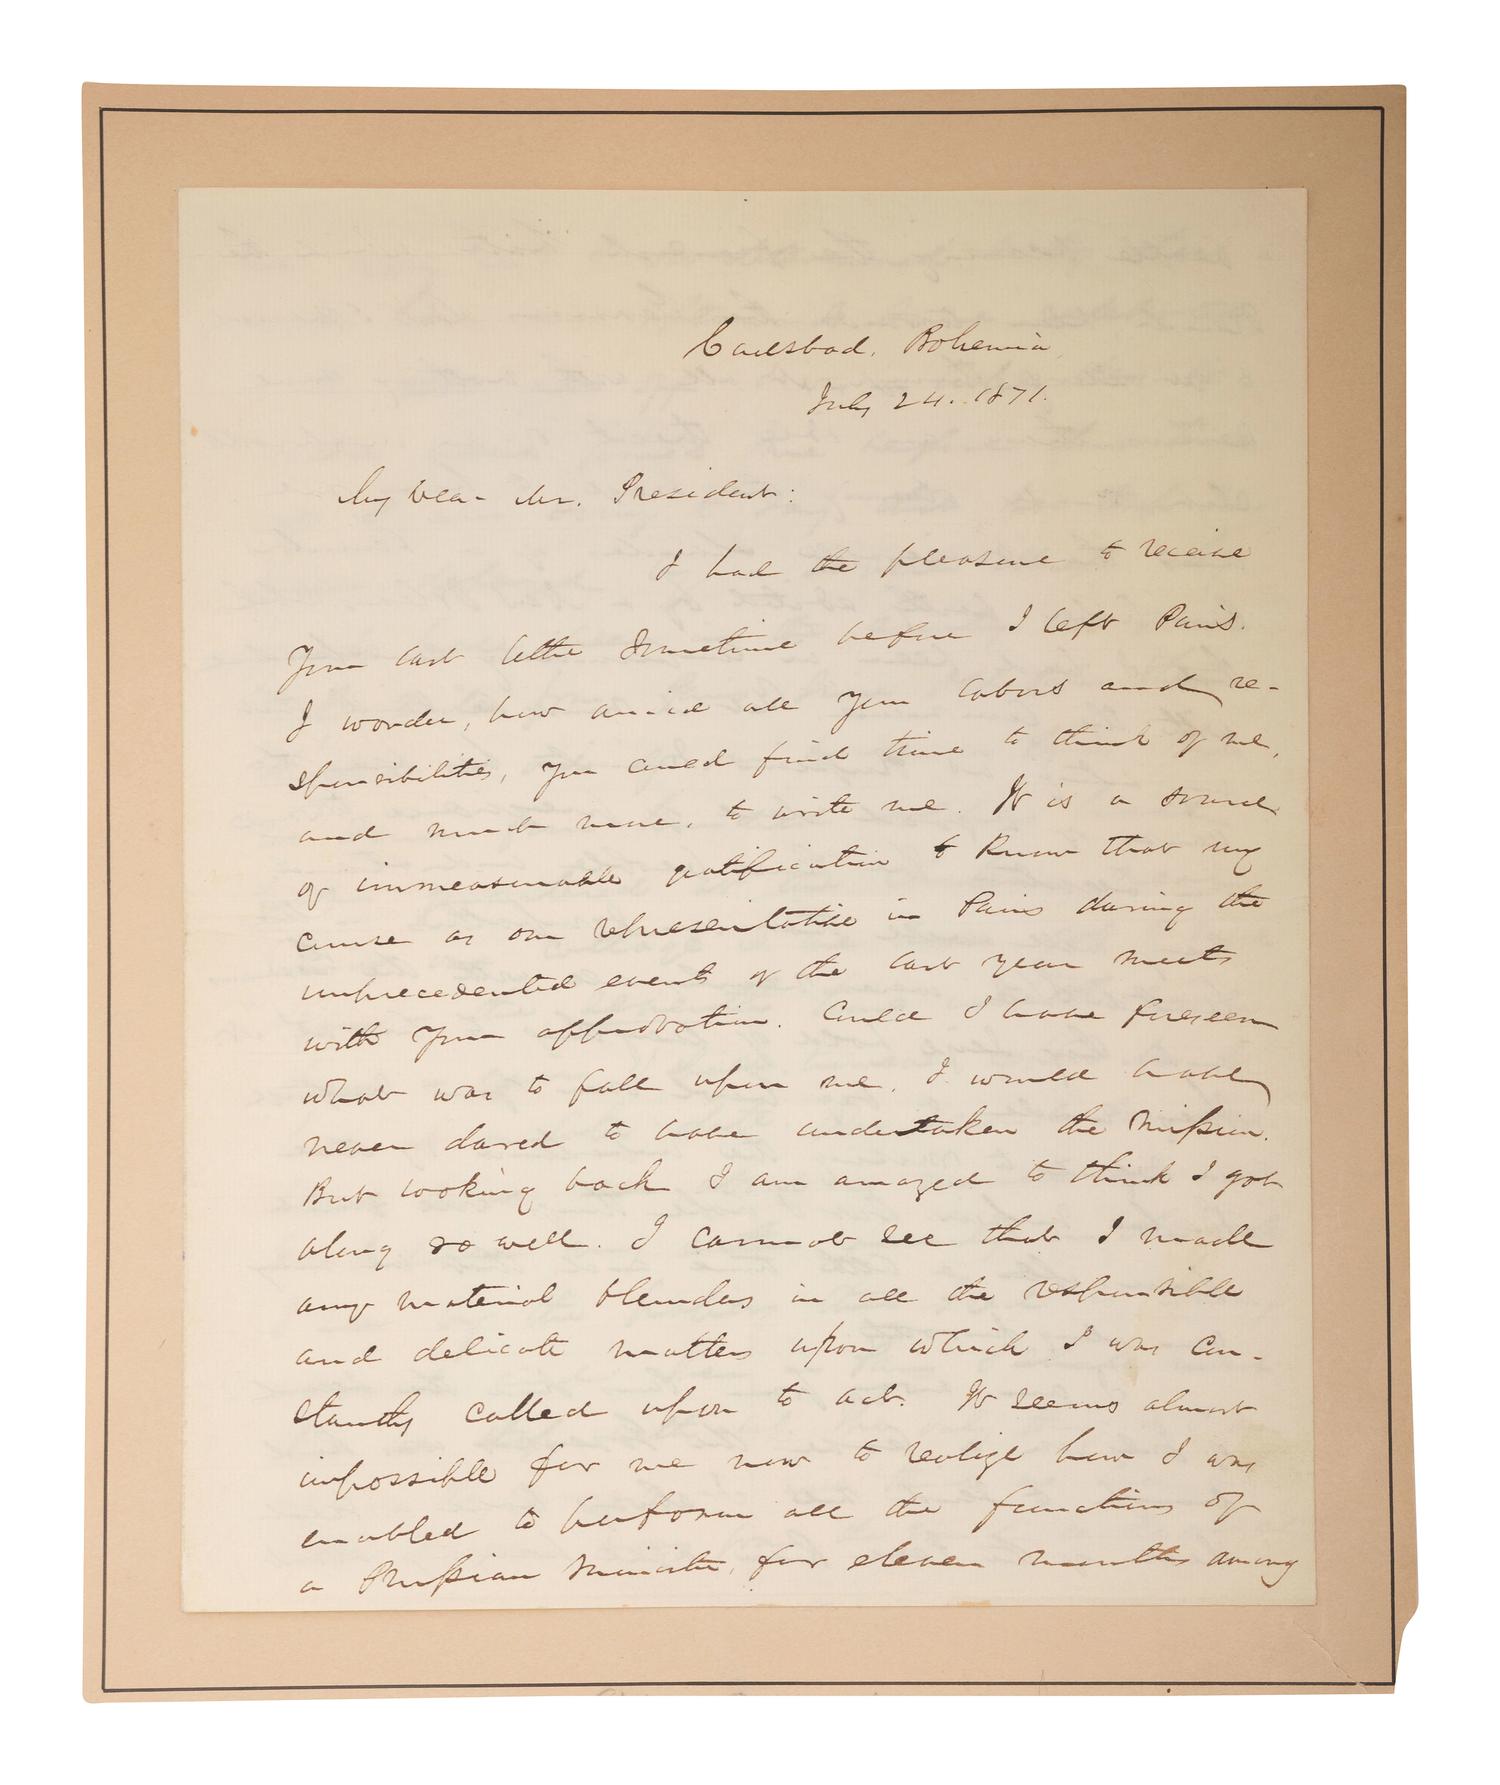 Carlsbad, Bohemia
July 24. 1871.
My Dear Mr. President:
I had the pleasure to receive
Your last letter sometime before I left Paris.
I wonder, how amid all your labors and re-
sponsibilities, you could find time to think of me,
and much more, to write me. It is a source
of immeasurable gratification to know that my
course as our representative in Paris during the
unprecedented events of the last year meets
with your approbation. Could I have foreseen
what was to fall upon me, I would have
never dared to have undertaken the mission.
But looking back I am amazed to think I got
along so well. I cannot see that I made
any material blunders in all the responsible
and delicate matters upon which I was con-
stantly called upon to act. It seems almost
impossible for me now to realize how I was
enabled to perform all the functions of
a Prussian Minister, for eleven months among